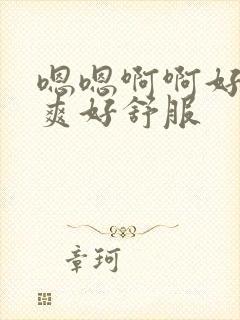 嗯嗯啊啊好
爽好舒服
章珂